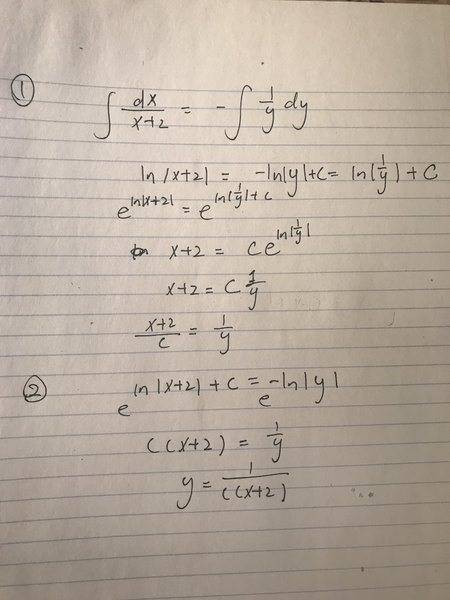 ① ∫ dx/(x+2) = -∫ 1/y dy
ln|x+2| = -ln|y|+C = ln|1/y| + C
e^(ln|x+2|) = e^(ln|1/y|+C)
x+2 = Ce^(ln|1/y|)
x+2 = C 1/y
(x+2)/C = 1/y
② e^(ln|x+2|+C) = e^(-ln|y|)
C(x+2) = 1/y
y = 1/(C(x+2))